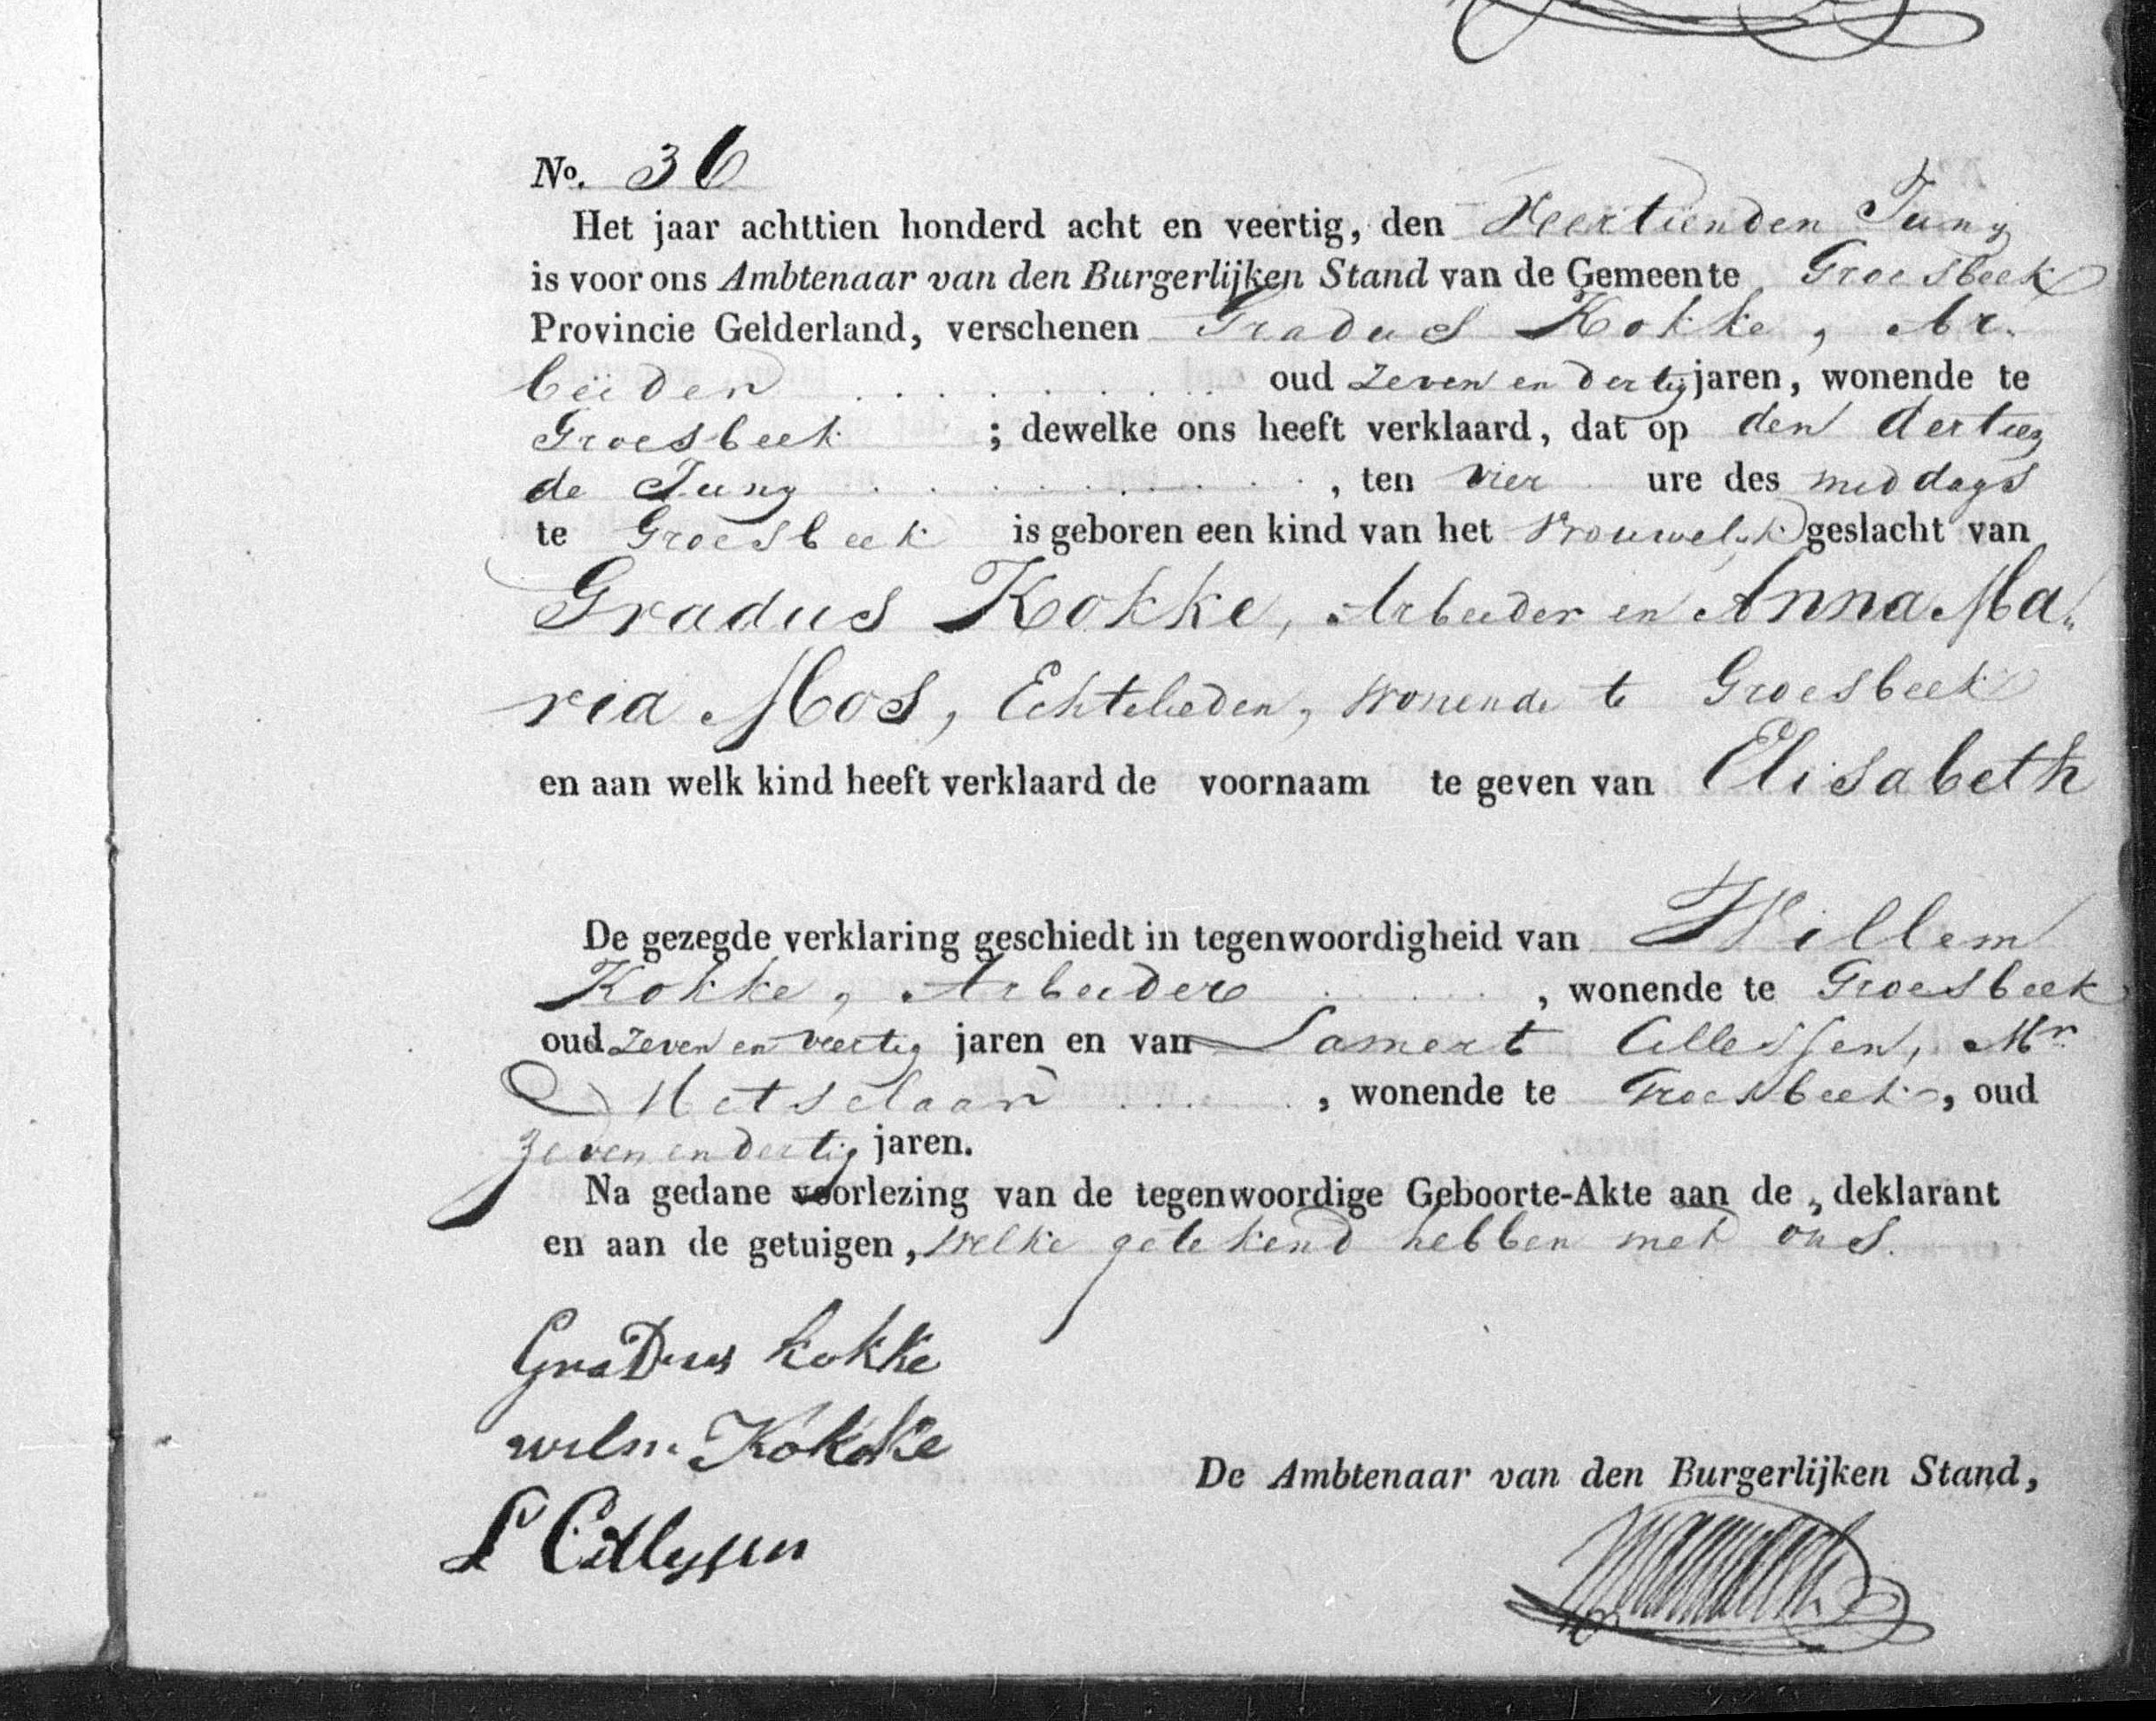 No. 36
Het jaar achttien honderd acht en veertig, den Veertienden Juny
is voor ons Ambtenaar van den Burgerlijken Stand van de Gemeente Groesbeek
Provincie Gelderland, verschenen Gradus Kokke, Ar-
beider oud zeven en dertig jaren, wonende te
Groesbeek ; dewelke ons heeft verklaard, dat op den dertien
de Juny , ten vier ure des middags
te Groesbeek is geboren een kind van het Vrouwelyk geslacht van
Gradus Kokke, Arbeider en Anna Ma„
ria Mos, Echtelieden, wonende te Groesbeek
en aan welk kind heeft verklaard de voornaam te geven van Elisabeth
De gezegde verklaring geschiedt in tegenwoordigheid van Willem
Kokke, Arbeider , wonende te Groesbeek
oud zeven en veertig jaren en van Lamert Cillessen, Mr
Metselaar , wonende te Groesbeek, oud
zeven en dertig jaren.
Na gedane voorlezing van de tegenwoordige Geboorte-Akte aan de deklarant
en aan de getuigen, welke getekend hebben met ons.
GraDus kokke
wilm. Kokke
L Cillessen
De Ambtenaar van den Burgerlijken Stand,